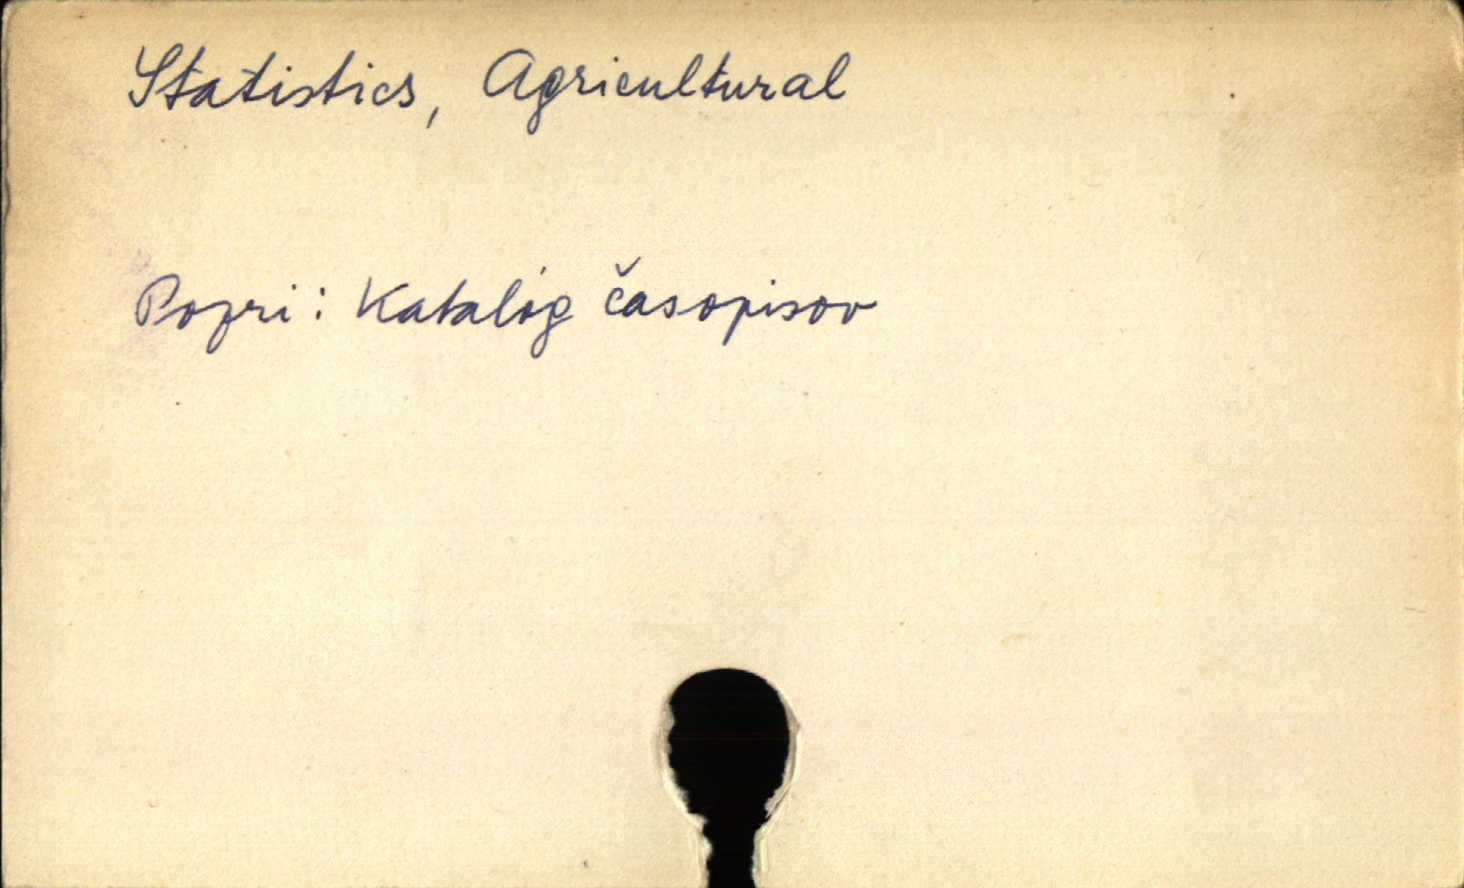 Statistics, Agricultural
Pozri: Katalóg časopisov